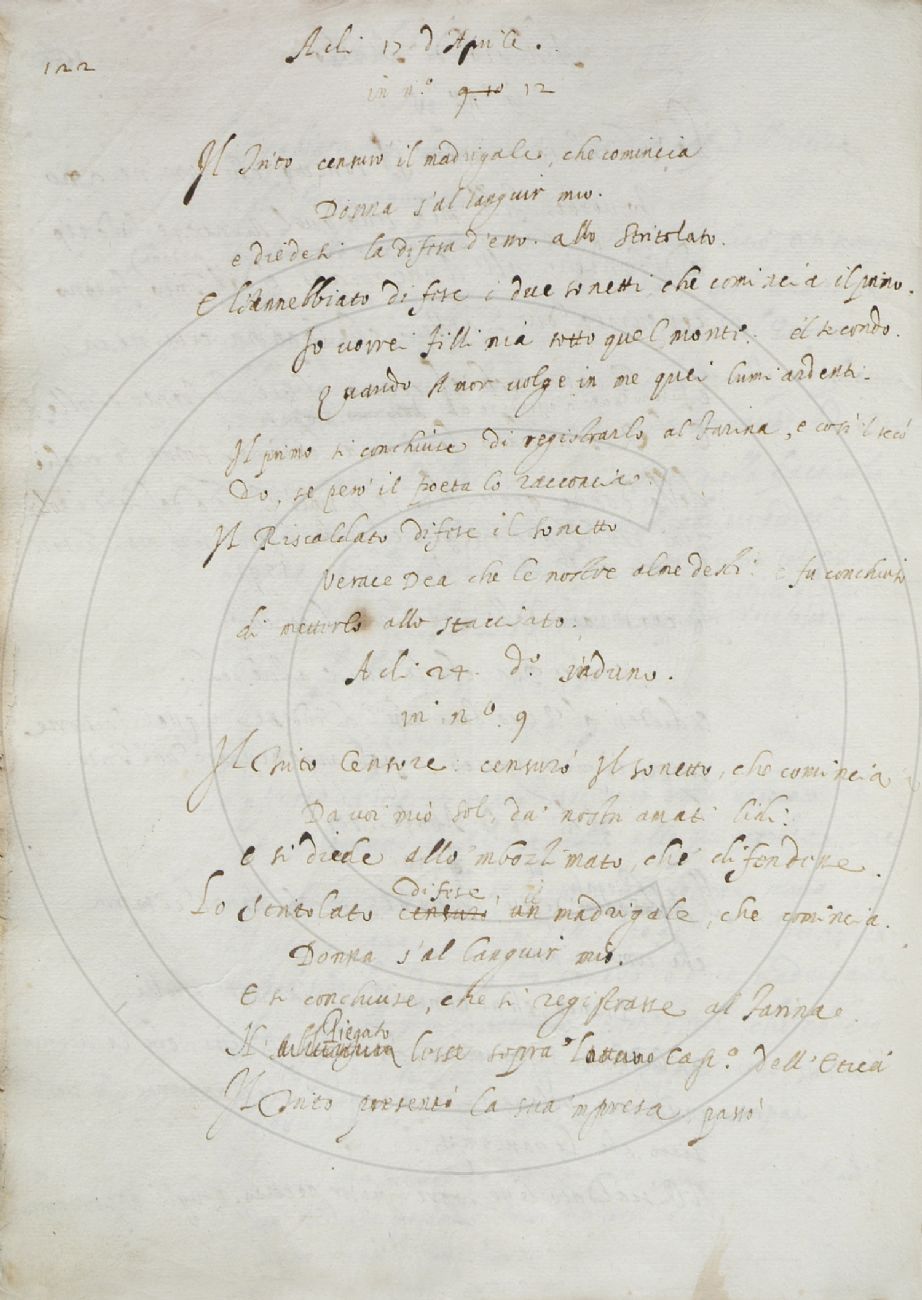 122
A di 17 d'Aprile.
in n.º 9. 10 12
Il Trito censurò il madrigale, che comincia
Donna s'al languir mio.
e diedesi la difesa d'esso. allo Stritolato.
E l'Annebbiato difese i due sonetti, che comincia il primo.
Io vorrei Filli mia sotto quel monte. el secondo.
Quando Amor volge in me quei lumi ardenti.
Il primo si conchiuse di registrarlo al Farina, e così 'l secō
do, se però il poeta lo racconcia.
Il Riscaldato difese il sonetto
Verace Dea che le nostre alme desti: e fu conchiuso
di metterlo allo stacciato.
A di 24. dº.
in nº. 9
Il Trito Censore censurò il sonetto, che comincia
Da voi mio sol, da' nostri amati lidi:
e si diede allo 'mbozzimato, che difendesse.
difese il
Lo Stritolato censurò un madrigale, che comincia.
Donna s'al languir mio.
E si conchiuse, che si registrasse al Farina.
Piegato
Il lesse sopra l'ottavo Cap.º dell'Etica
Il Trito presentò la sua impresa, passò